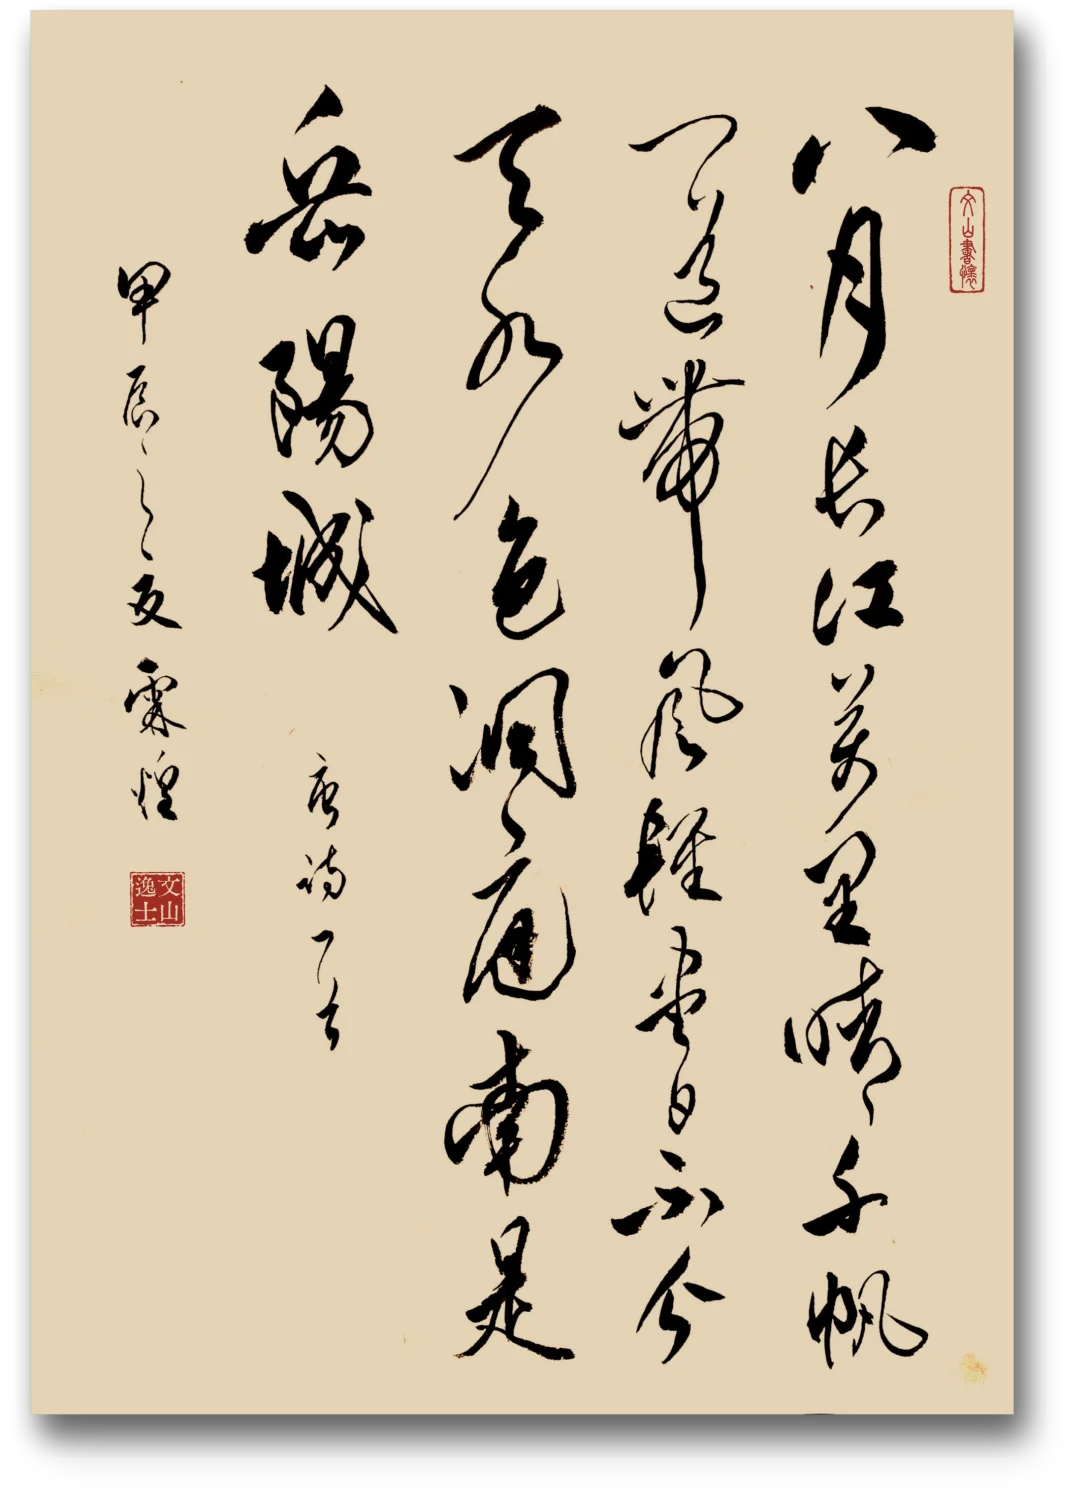 文山書懷
八月長江萬里晴千帆
一道帶風輕盡日不分
天水色洞庭南是
岳陽城
唐詩一首
甲辰之夏霖煌
文山逸士